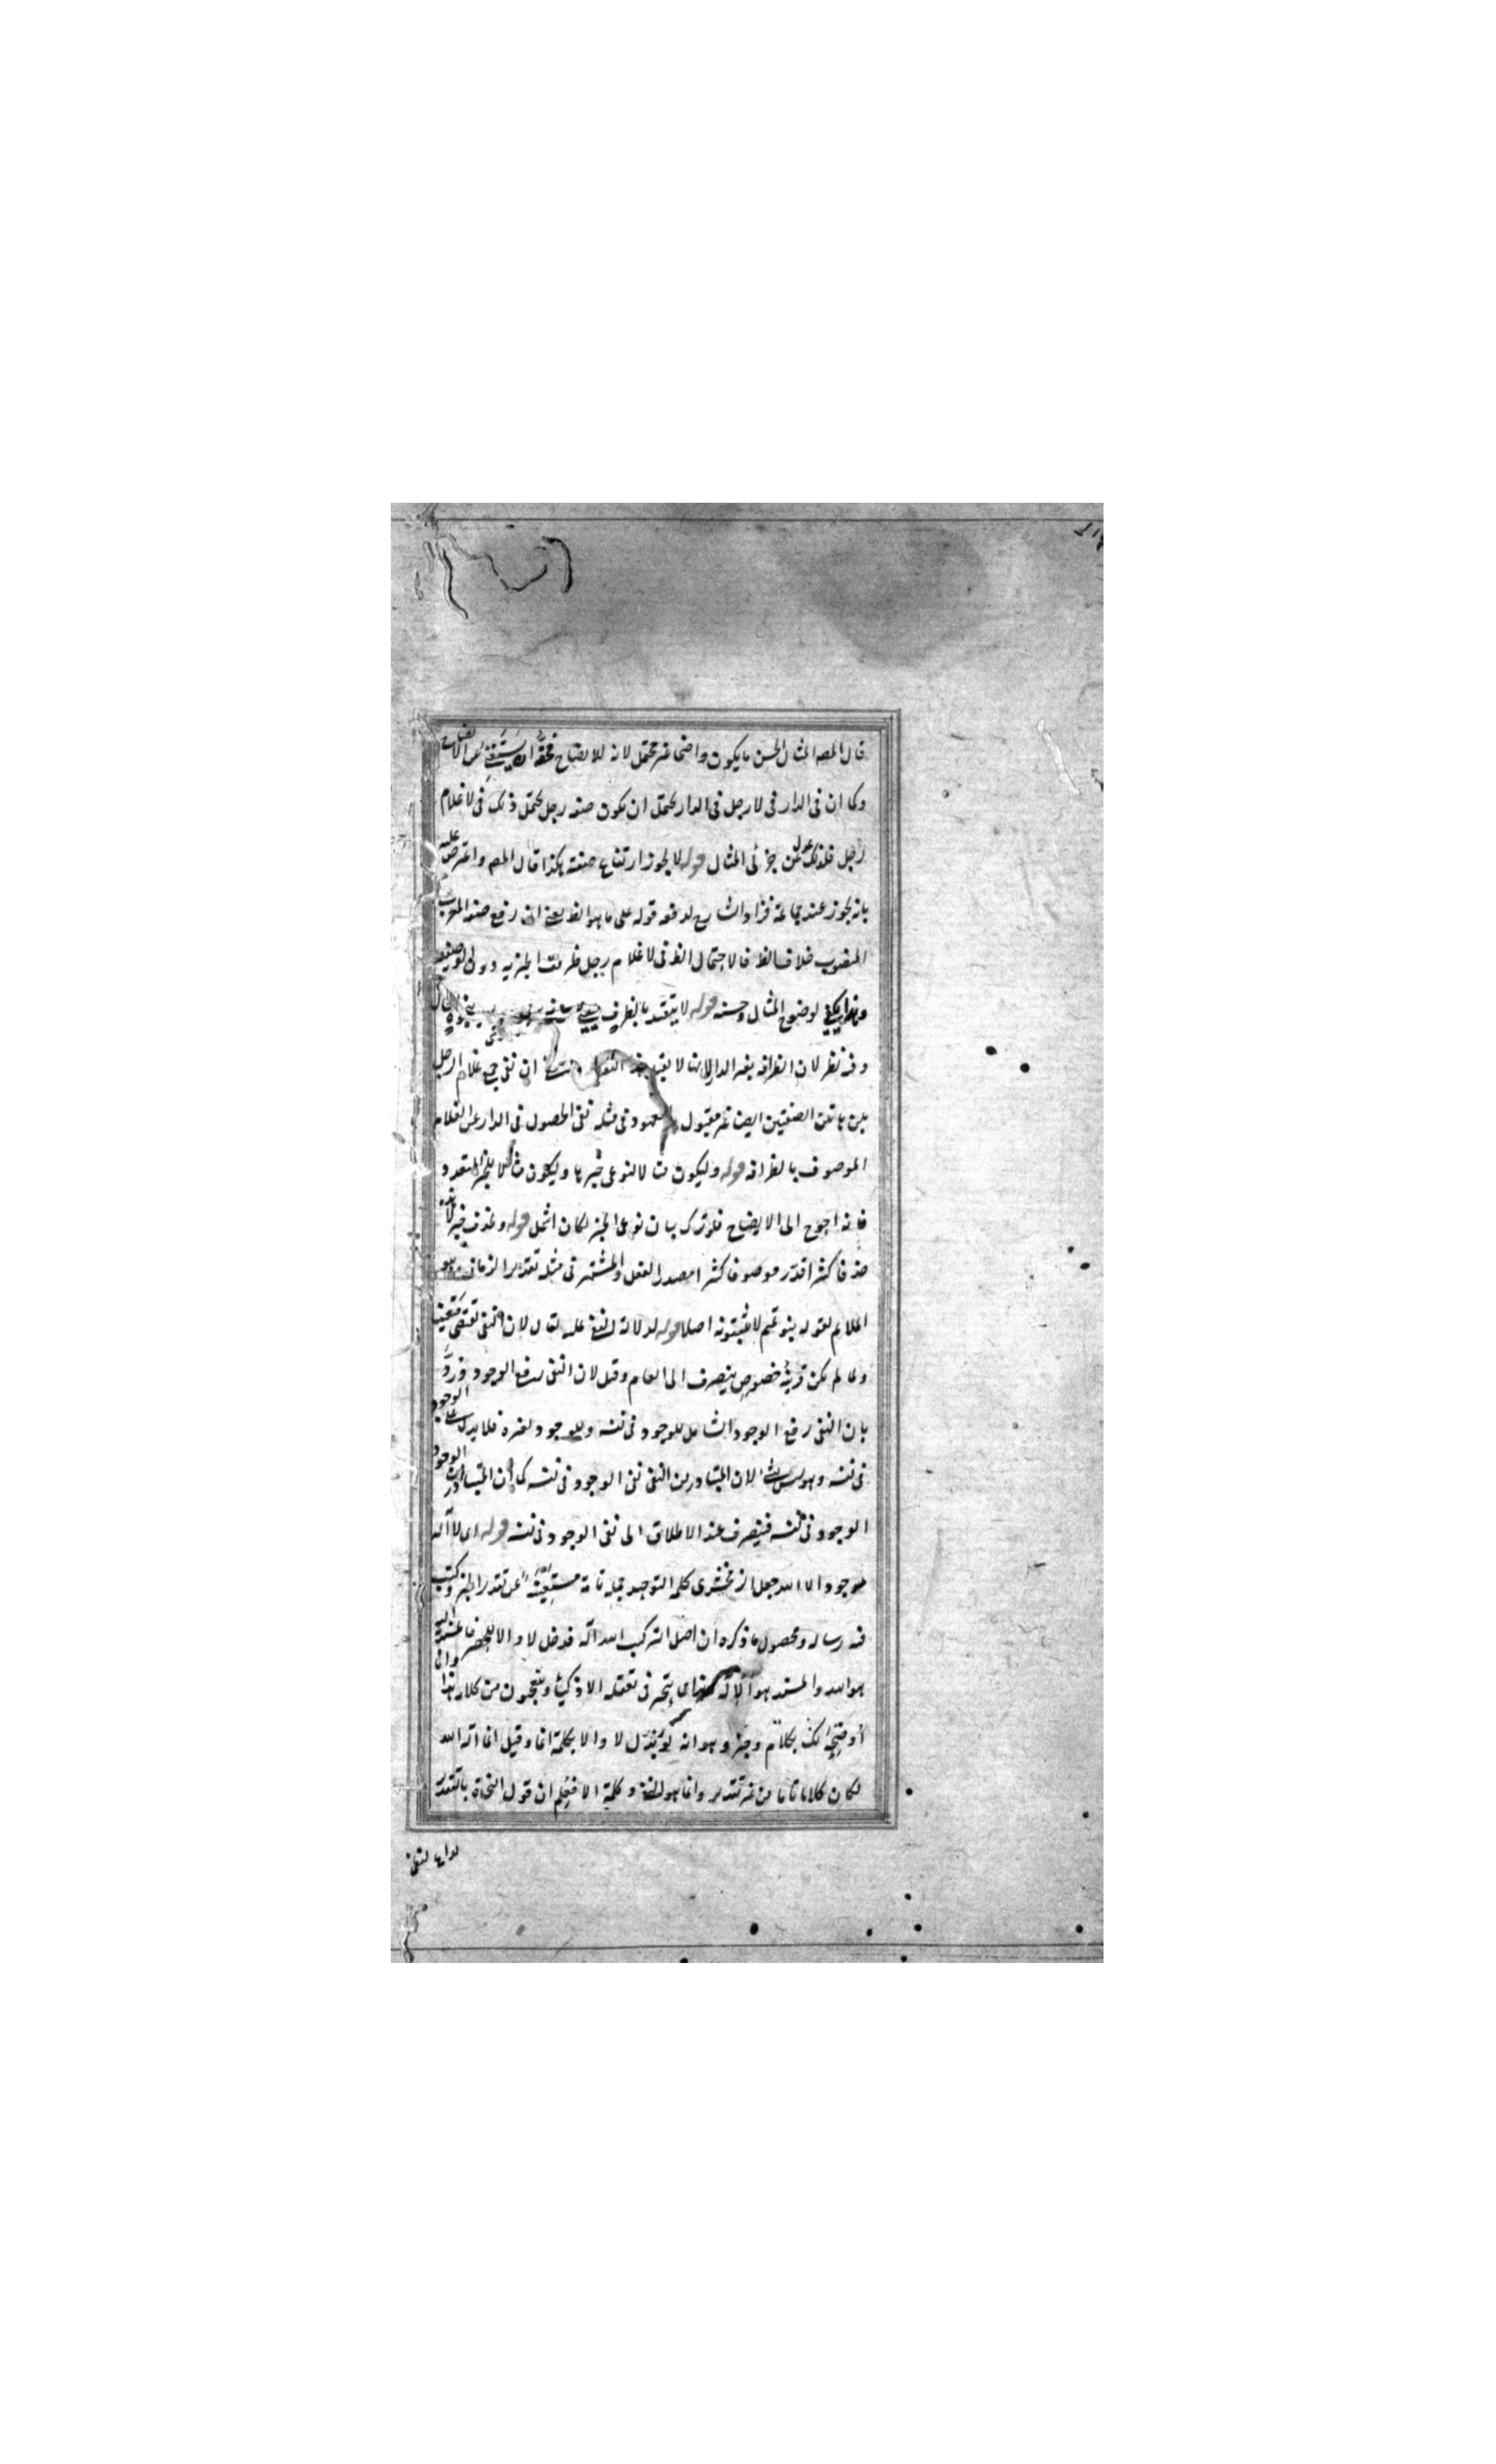 قال المصه المثال الحسن ما يكون واضحا غير محتمل لانه للايضاح فحقه ان يستغنى عن الايضاح
وكما ان فى الدار فى لا رجل فى الدار يحتمل ان يكون صفه رجل يحتمل ذلك فى لا غلام
رجل فلذلك عدل عن جزئى المثال قوله لا يجوز ارتفاع صفته هكذا قال المصه واعترض عليه
بانه يجوز عند جماعة فزاد الشارح لدفعه قوله على ما هو الظ يعنى ان رفع صفه المعرب
المنصوب خلاف الظ فالاحتمال الظ فى لا غلام رجل ظريف الخبريه دون التوصيف
وهذا يكفى لوضوح المثال وحسنه قوله لا يتقيد بالظرف
وفيه نظر لان الظرافه بعد الدار لانها لا تقيد ان نفى جميع غلام الرجل
بين هاتين الصفتين ايضا غير مقبول فى مثله نفى الحصول فى الدار عن الغلام
الموصوف بالظرافه قوله وليكون مثالا لنوعى خبرها وليكون مثالا للخبر المتعدد
فانه احوج الى الايضاح فلو ترك بيان نوعى الخبر لكان اشمل قوله ويحذف خبر لا هذه
حذفا كثيرا قدر موصوف كثيرا مصدر الفعل والمشتهر فى مثله تقدير الزمان وهو
الملايم لقوله بنو تميم لا يثبتونه اصلا قوله لدلالة النفى عليه يقال لان النفى يقتضى منفيا
ولما لم يكن قرينة خصوص ينصرف الى العام وقيل لان النفى رفع الوجود ورد
بان النفى رفع الوجود الشامل للوجود فى نفسه وللوجود لغيره فلا يدل على الوجود
فى نفسه وهو ليس بشئ لان المتبادر من النفى نفى الوجود فى نفسه كما ان المتبادر من الوجود
الوجود فى نفسه فينصرف عند الاطلاق الى نفى الوجود فى نفسه قوله اى لا اله
موجود الا الله جعل الزمخشرى كلمة التوحيد جملة تامة مستغنية عن تقدير الخبر وكتب
فيه رساله ومحصول ما ذكره ان اصل التركيب الله اله فدخل لا والا للحصر فالمسند اليه
هو الله والمسند هو الاله يتحير فى تعقله الاذكياء ويتعجبون من كلامه هذا وانا
اوضحه لك بكلام وجيز وهو انه لو بدل لا والا بكلمة انما وقيل انما اله الله
لكان كلاما تاما من غير تقدير وانما هو النفى وكلمة الا فعلم ان قول النحاة بالتقدير